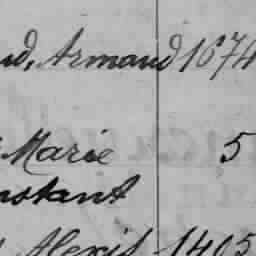 ud, Armand 1674
Marie 5
nstant
Alexis 1405